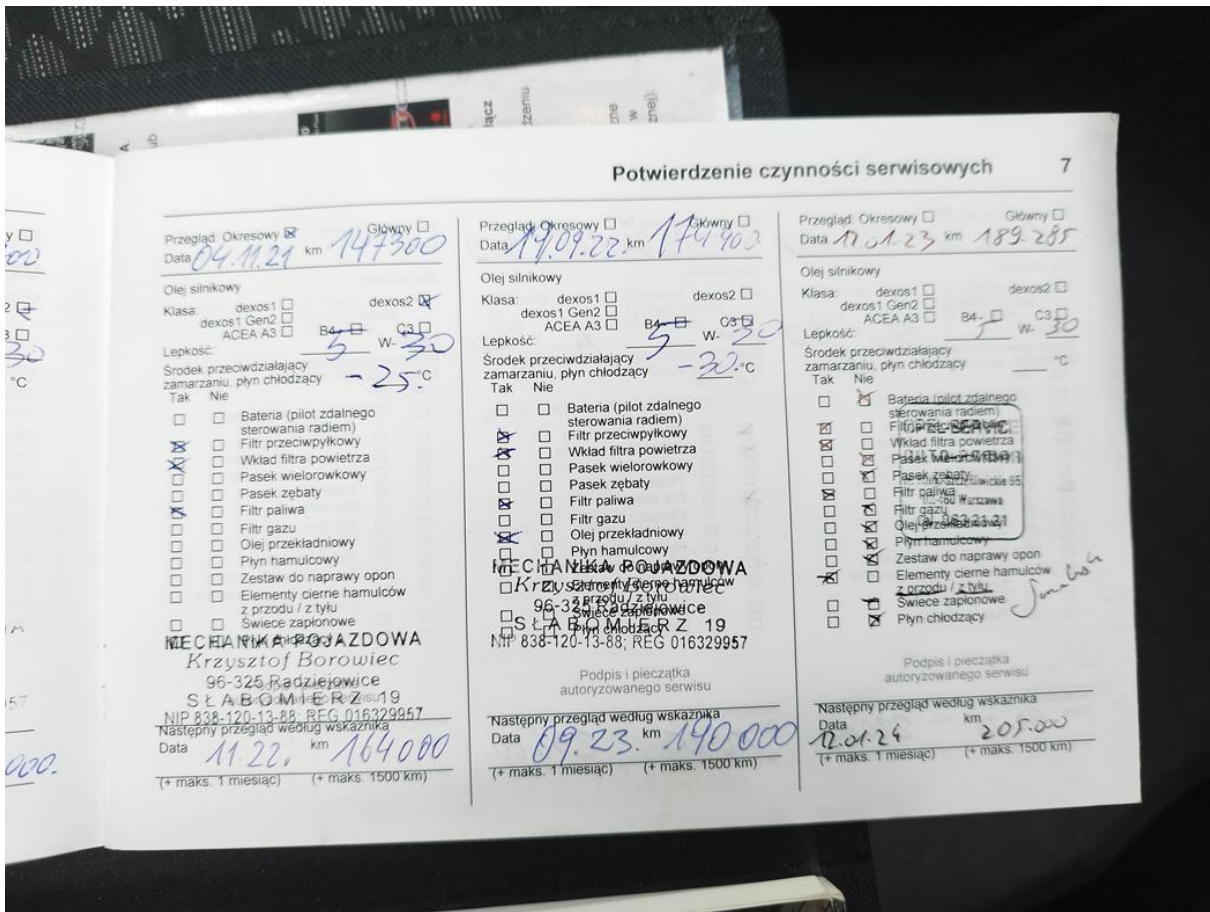 Potwierdzenie czynności serwisowych 7
Przegląd: Okresowy Główny
Data 04.11.21 km 147300
Olej silnikowy
Klasa: dexos1 dexos2
dexos1 Gen2
ACEA A3 B4- C3
Lepkość: 5 W- 30
Środek przeciwdziałający
zamarzaniu, płyn chłodzący -25 °C
Tak Nie
Bateria (pilot zdalnego
sterowania radiem)
Filtr przeciwpyłkowy
Wkład filtra powietrza
Pasek wielorowkowy
Pasek zębaty
Filtr paliwa
Filtr gazu
Olej przekładniowy
Płyn hamulcowy
Zestaw do naprawy opon
Elementy cierne hamulców
z przodu / z tyłu
Świece zapłonowe
Płyn chłodzący
MECHANIKA POJAZDOWA
Krzysztof Borowiec
96-325 Radziejowice
SŁABOMIERZ 19
NIP 838-120-13-88; REG 016329957
Następny przegląd według wskaźnika
Data 11.22. km 164000
(+ maks. 1 miesiąc) (+ maks. 1500 km)
Przegląd: Okresowy Główny
Data 19.09.22. km 174900
Olej silnikowy
Klasa: dexos1 dexos2
dexos1 Gen2
ACEA A3 B4- C3
Lepkość: 5 W- 30
Środek przeciwdziałający
zamarzaniu, płyn chłodzący -30 °C
Tak Nie
Bateria (pilot zdalnego
sterowania radiem)
Filtr przeciwpyłkowy
Wkład filtra powietrza
Pasek wielorowkowy
Pasek zębaty
Filtr paliwa
Filtr gazu
Olej przekładniowy
Płyn hamulcowy
Zestaw do naprawy opon
Elementy cierne hamulców
z przodu / z tyłu
Świece zapłonowe
Płyn chłodzący
MECHANIKA POJAZDOWA
Krzysztof Borowiec
96-325 Radziejowice
SŁABOMIERZ 19
NIP 838-120-13-88; REG 016329957
Podpis i pieczątka
autoryzowanego serwisu
Następny przegląd według wskaźnika
Data 09.23. km 190000
(+ maks. 1 miesiąc) (+ maks. 1500 km)
Przegląd: Okresowy Główny
Data 12.01.23 km 189.285
Olej silnikowy
Klasa: dexos1 dexos2
dexos1 Gen2
ACEA A3 B4- C3
Lepkość: 5 W- 30
Środek przeciwdziałający
zamarzaniu, płyn chłodzący °C
Tak Nie
Bateria (pilot zdalnego
sterowania radiem)
Filtr przeciwpyłkowy
Wkład filtra powietrza
Pasek wielorowkowy
Pasek zębaty
Filtr paliwa
Filtr gazu
Olej przekładniowy
Płyn hamulcowy
Zestaw do naprawy opon
Elementy cierne hamulców
z przodu / z tyłu
Świece zapłonowe
Płyn chłodzący
Warszawa
Podpis i pieczątka
autoryzowanego serwisu
Następny przegląd według wskaźnika
Data 12.01.24 km 205.000
(+ maks. 1 miesiąc) (+ maks. 1500 km)